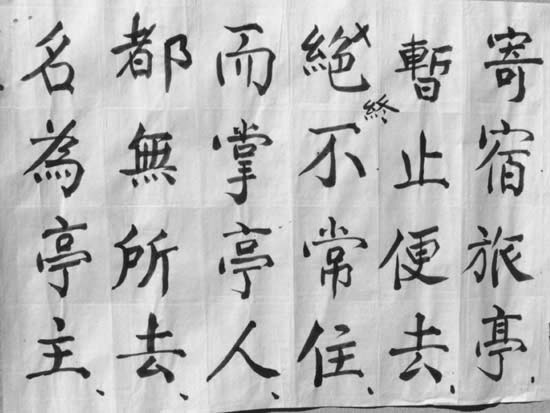 寄宿旅亭、
暫止便去、
絕終不常住、
而掌亭人、
都無所去、
名為亭主、